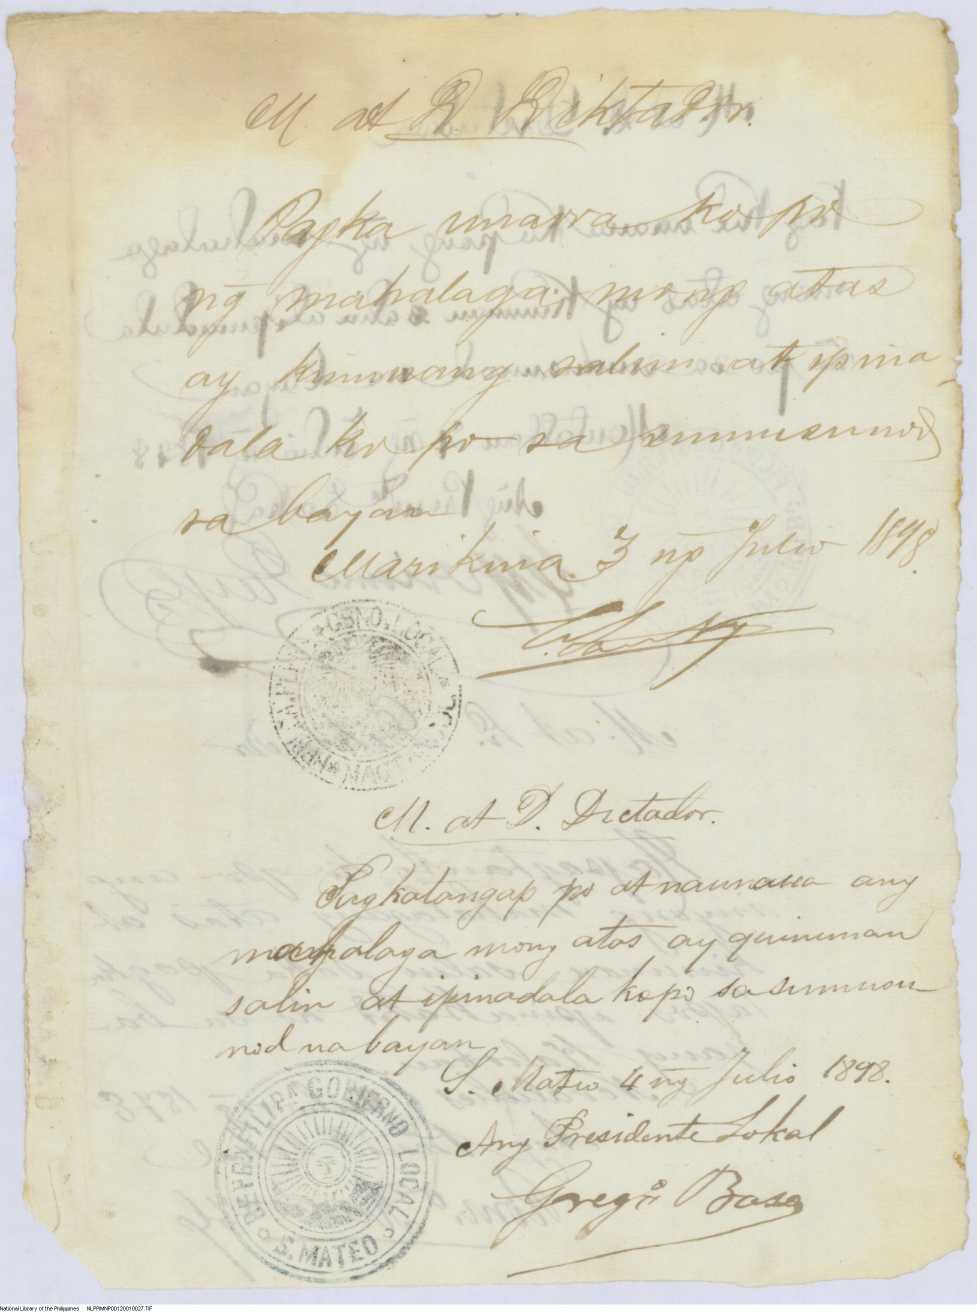 M. at D. Diktador.
Pagka unawa ko po
ng̃ mahalaga mong atas
ay kinuang salin at ipina-
dala ko po sa sumusunod
sa bayan
Marikina 3 ng̃ Julio 1898.
GBNO. LOCAL
M. at D. Dictador.
Pagkatangap po at naunaua ang
mahalaga mong atas ay quinunan
salin at ipinadala kopo sa sumusu-
nod na bayan
S. Mateo 4 ng̃ Julio 1898.
Ang Presidente Lokal
Grego Basa
REPCA FILIPA GOBIERNO LOCAL
S. MATEO
National Library of the Philippines NLPPIMNP00120010027.TIF